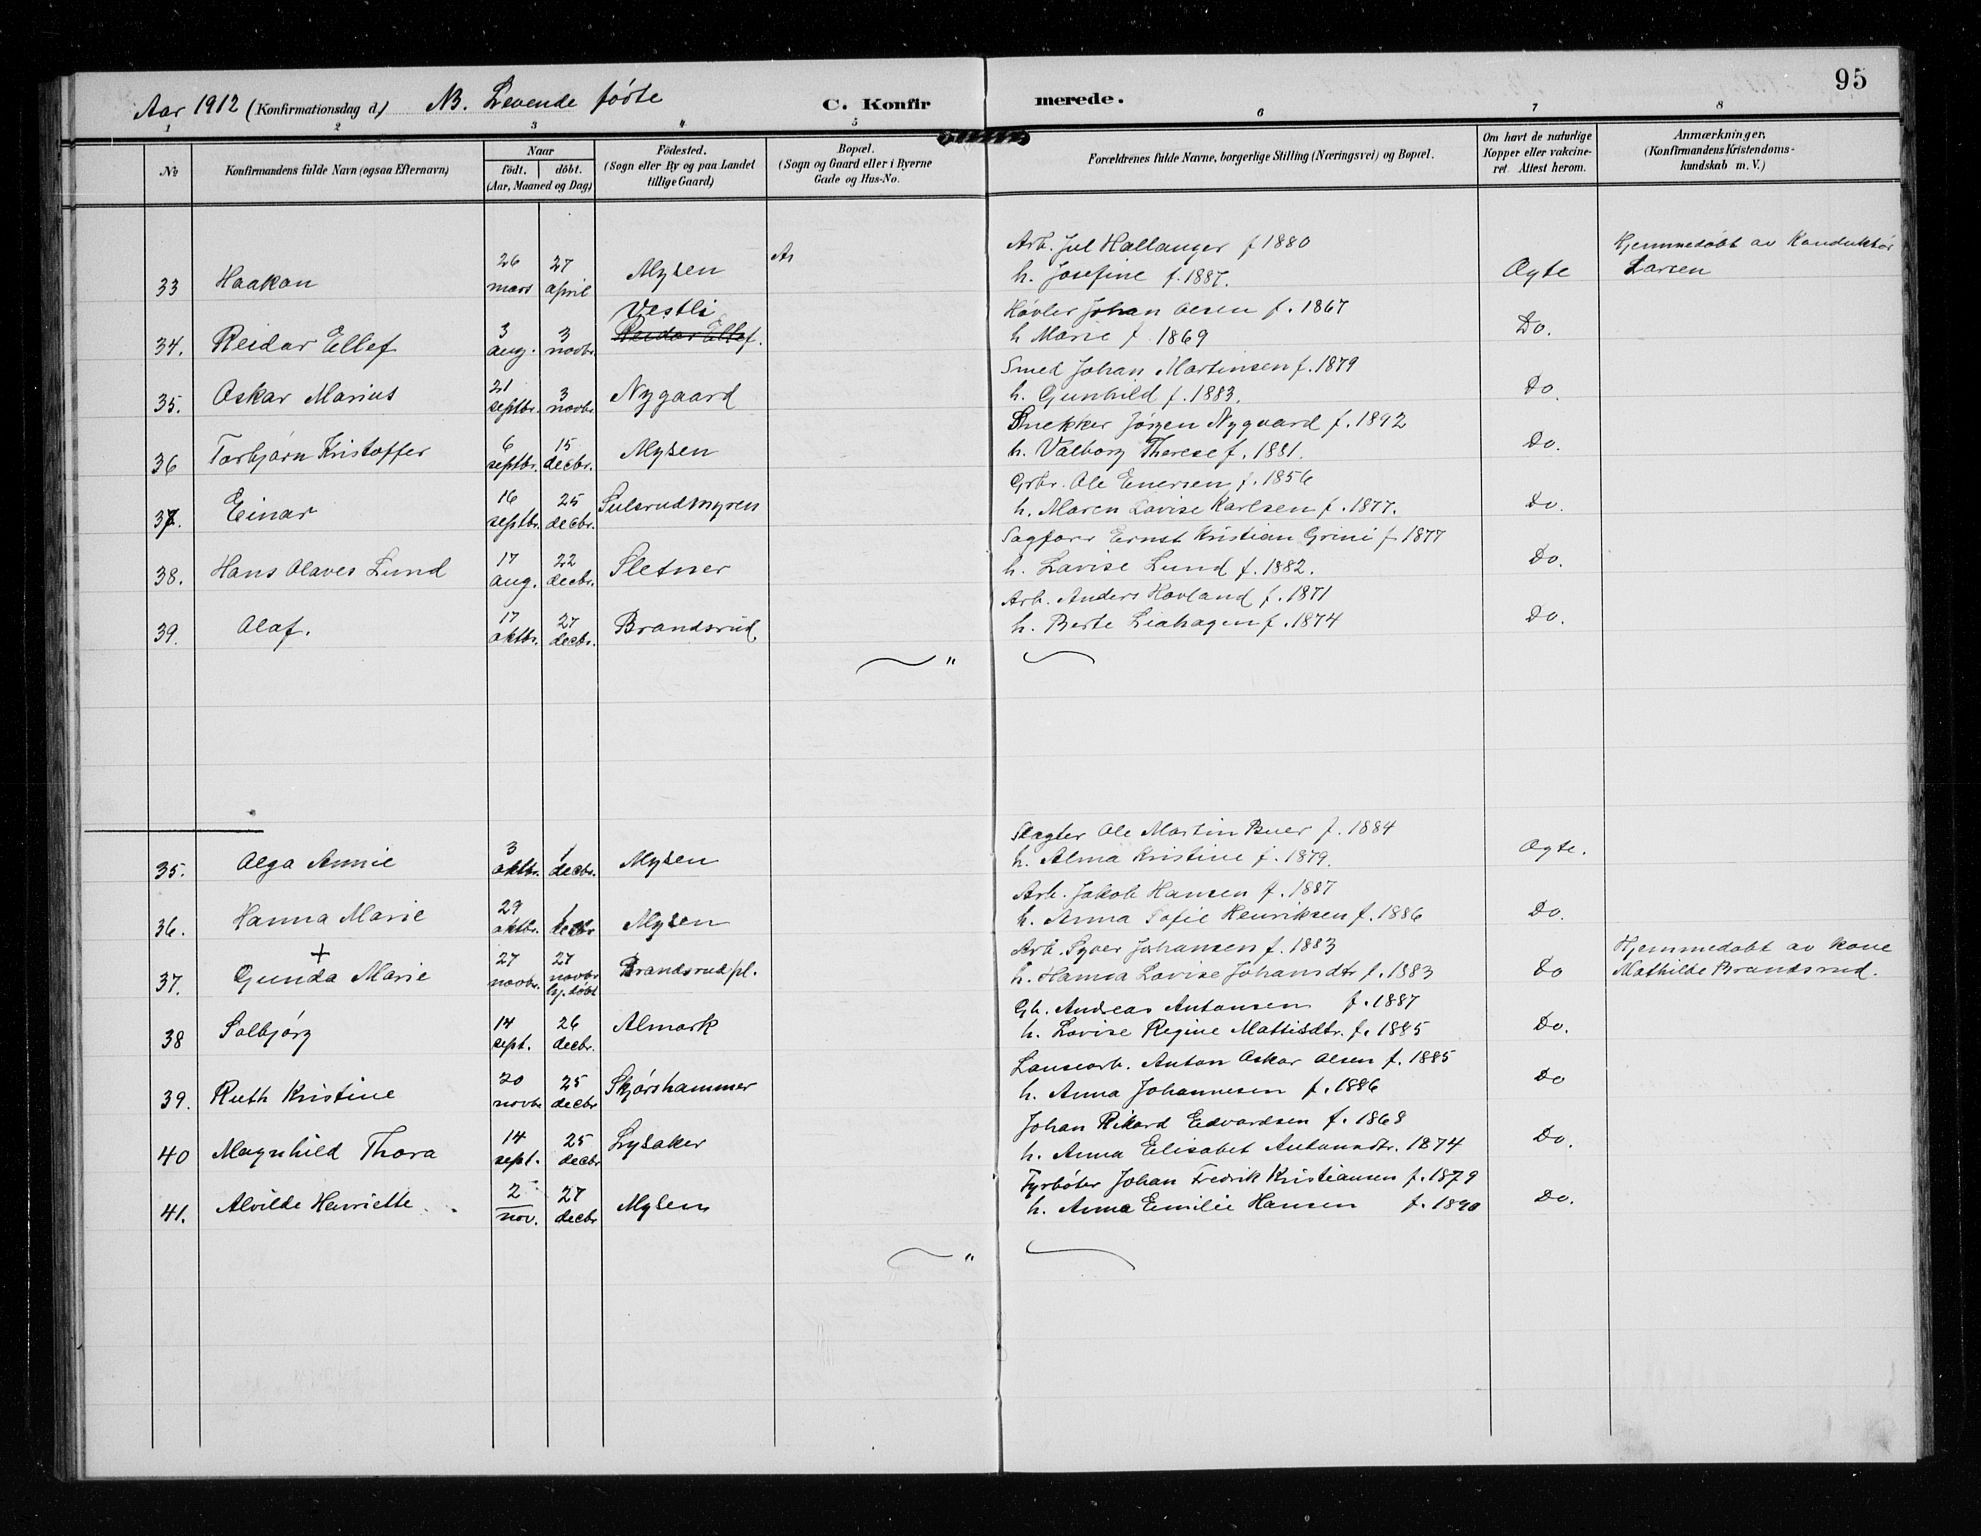 95
Aar 1912 (Konfirmationsdag d.) NB. Levende fødte C. Konfirmerede.
1 2 3 4 5 6 7 8
No
Konfirmandens fulde Navn (ogsaa Efternavn)
Naar
født. døbt.
(Aar, Maaned og Dag)
Fødested.
(Sogn eller By og paa Landet
tillige Gaard)
Bopæl.
(Sogn og Gaard eller i Byerne
Gade og Hus-No.
Forældrenes fulde Navne, borgerlige Stilling (Næringsvei) og Bopæl.
Om havt de naturlige
Kopper eller vakcine-
ret Attest herom.
Anmærkninger.
(Konfirmandens Kristendoms-
kundskab m. V.)
33 Haakon 26 mars 27 april Mysen Ar
Arb. Jul Hallanger f 1880
h. Josefine f. 1887. Ægte
Hjemmedøbt av Konduktør
Larsen
34. Reidar Ellef 3 aug. 3 novbr. Vestli
Reidar Ellef.
Høvler Johan Olsen f. 1867
h Marie f. 1869 Do.
35. Oskar Marius 21 septbr. 3 novbr Nygaard
Smed Johan Martinsen f. 1879
h. Gunhild f. 1883. Do.
36 Torbjørn Kristoffer 6 septbr. 15 decbr. Mysen
Snekker Jørgen Nygaard f. 1892
h. Valborg Therese f. 1881. Do.
37. Einar 16 septbr. 25 decbr. Sulsrudmyren
Grbr. Ole Enersen f. 1856
h. Maren Lovise Karlsen f. 1877. Do.
38. Hans Olaves Lund 17 aug. 22 decbr. Sletner
Sagfører Ernst Kristian Grini f 1877
h. Lovise Lund f. 1882. Do.
39. Olaf. 17 oktbr. 27 decbr. Brandsrud.
Arb. Anders Hovland f. 1871
h. Berte Liahagen f. 1874 Do.
"
35. Olga Annie 3 oktbr. 1 decbr. Mysen
Slagter Ole Martin Buer f. 1884
h. Alma Kristine f. 1879. Ægte.
36. Hanna Marie 29 oktbr. 1 decbr Mysen
Arb. Jakob Hansen f. 1887
h. Anna Sofie Henriksen f. 1886 Do.
+
37. Gunda Marie 27 novbr. 27 novbr hj. døbt Brandsrud pl.
Arb. Syver Johansen f. 1883
h. Hanna Lovise Johansdtr f. 1883 Do
Hjemmedøbt av kone
Mathilde Brandsrud.
38 Solbjørg 14 sept. 26 decbr. Almark
Gb. Andreas Antonsen f. 1887
h. Lovise Regine Mattisdtr. f. 1885 Do.
39. Ruth Kristine 20 novbr 25 decbr Skjørshammer
Anton Oskar Olsen f. 1885
h. Anna Johannesen f. 1886 Do
40 Magnhild Thora 14 sept. 25 decbr Lysaker
Johan Rikard Edvardsen f. 1868
h. Anna Elisabet Antonsdtr. 1874 Do.
41. Alvilde Henriette. 2 nov. 27 decbr Mysen
Fyrbøter Johan Fredrik Kristiansen f. 1879
h. Anna Emilie Hansen f. 1890 Do.
"